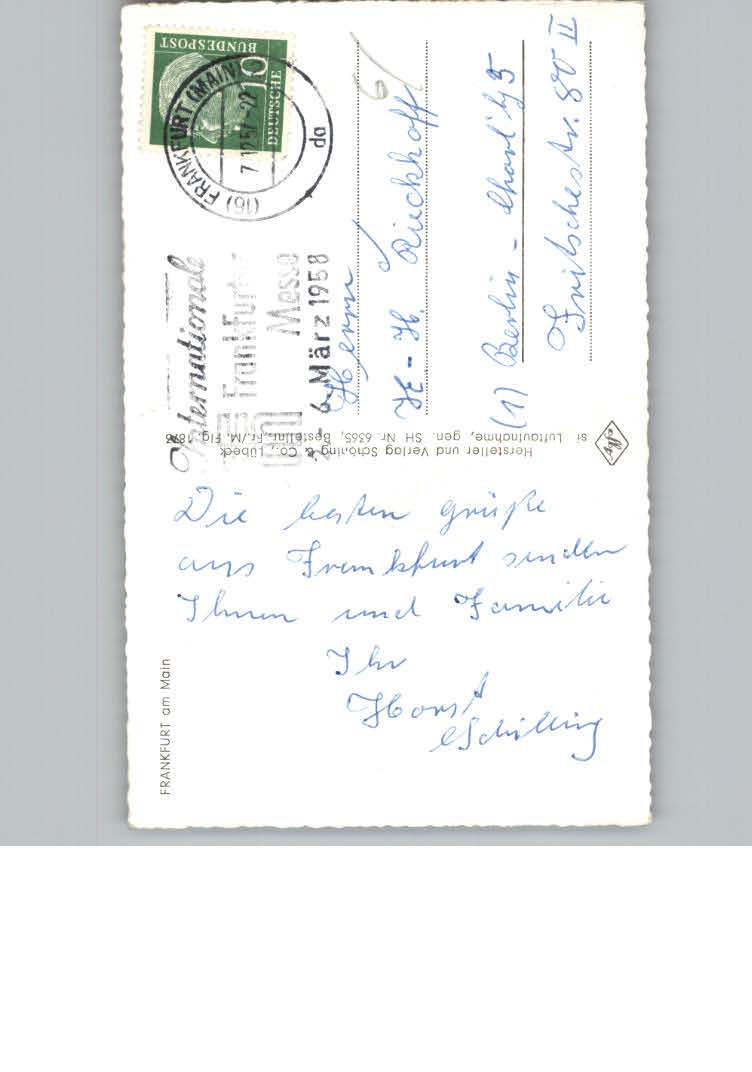 DEUTSCHE
BUNDESPOST
10
(16) FRANKFURT (MAIN)
7.12.57-22
da
Internationale
Frankfurter
Messe
2.-6. März 1958
6
Herrn
H.-H. Rückhoff
(1) Berlin - Charl'bg 5
Fritschestr. 80 II
Hersteller und Verlag Schöning & Co., Lübeck
si Luftaufnahme, gen. SH Nr. 6365, Bestellnr. Fr./M. Flg. 1876
agfa
Die besten Grüße
aus Frankfurt senden
Ihnen und Familie
Ihr
Horst
Schilling
FRANKFURT am Main